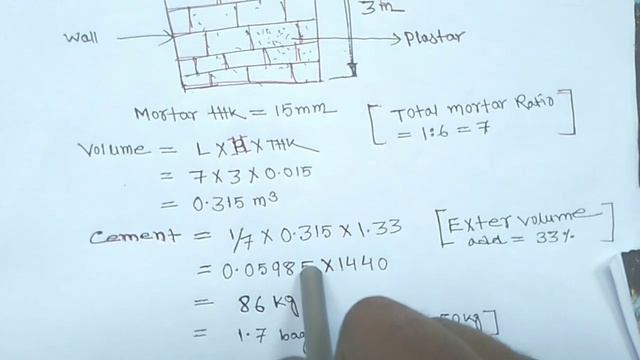 3m
Wall
Plastar
Mortar thk = 15mm
[Total mortar Ratio
= 1:6 = 7]
Volume = L × H × THK
= 7 × 3 × 0.015
= 0.315 m³
Cement = 1/7 × 0.315 × 1.33
[Exter volume
add = 33%]
= 0.05985 × 1440
= 86 kg
= 1.7 bag
50kg]